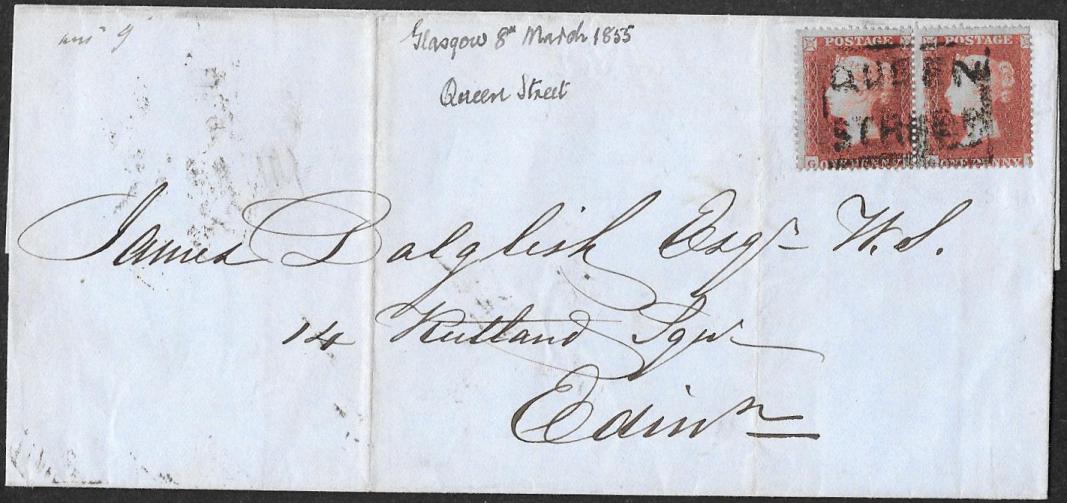 ansd 9
Glasgow 8th March 1855
Queen Street
POSTAGE POSTAGE
QUEEN
STREET
G ONE PENNY G ONE PENNY
James Dalglish Esqr W.S.
14 Rutland Sqr
Edinr